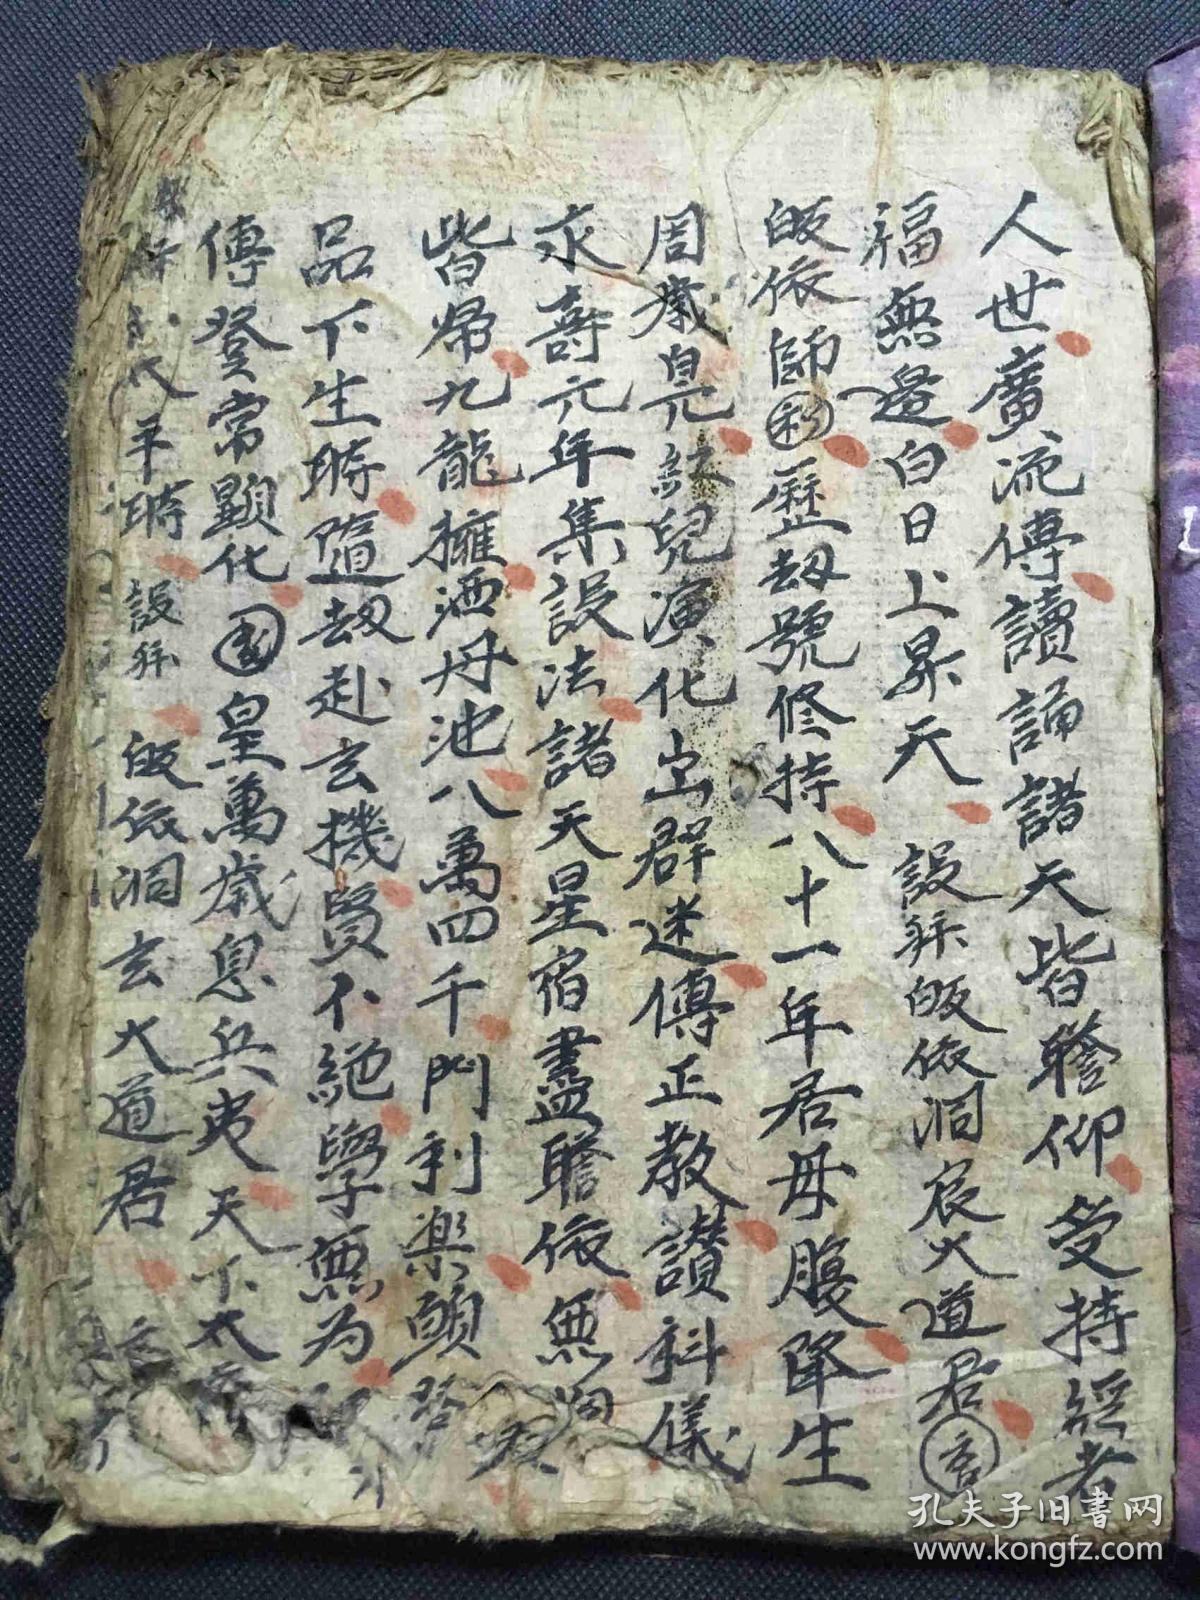 人世廣流傳讀誦諸天皆瞻仰受持經者
福無邊白日上昇天 設拜皈依洞宸大道君
皈依師 歷劫號修持八十一年居母腹降生
周歲 兒演化出群迷傳正教讚科儀
永壽元年集設法諸天星宿盡瞻依無
皆帰九龍擁洒丹池八萬四千門利楽
品下生時隨劫赴玄機賢不絕學無为
傳登常顕化 皇萬歲息兵夷天下太
代平時 設拜 皈依洞玄大道君
孔夫子旧書网
www.kongfz.com